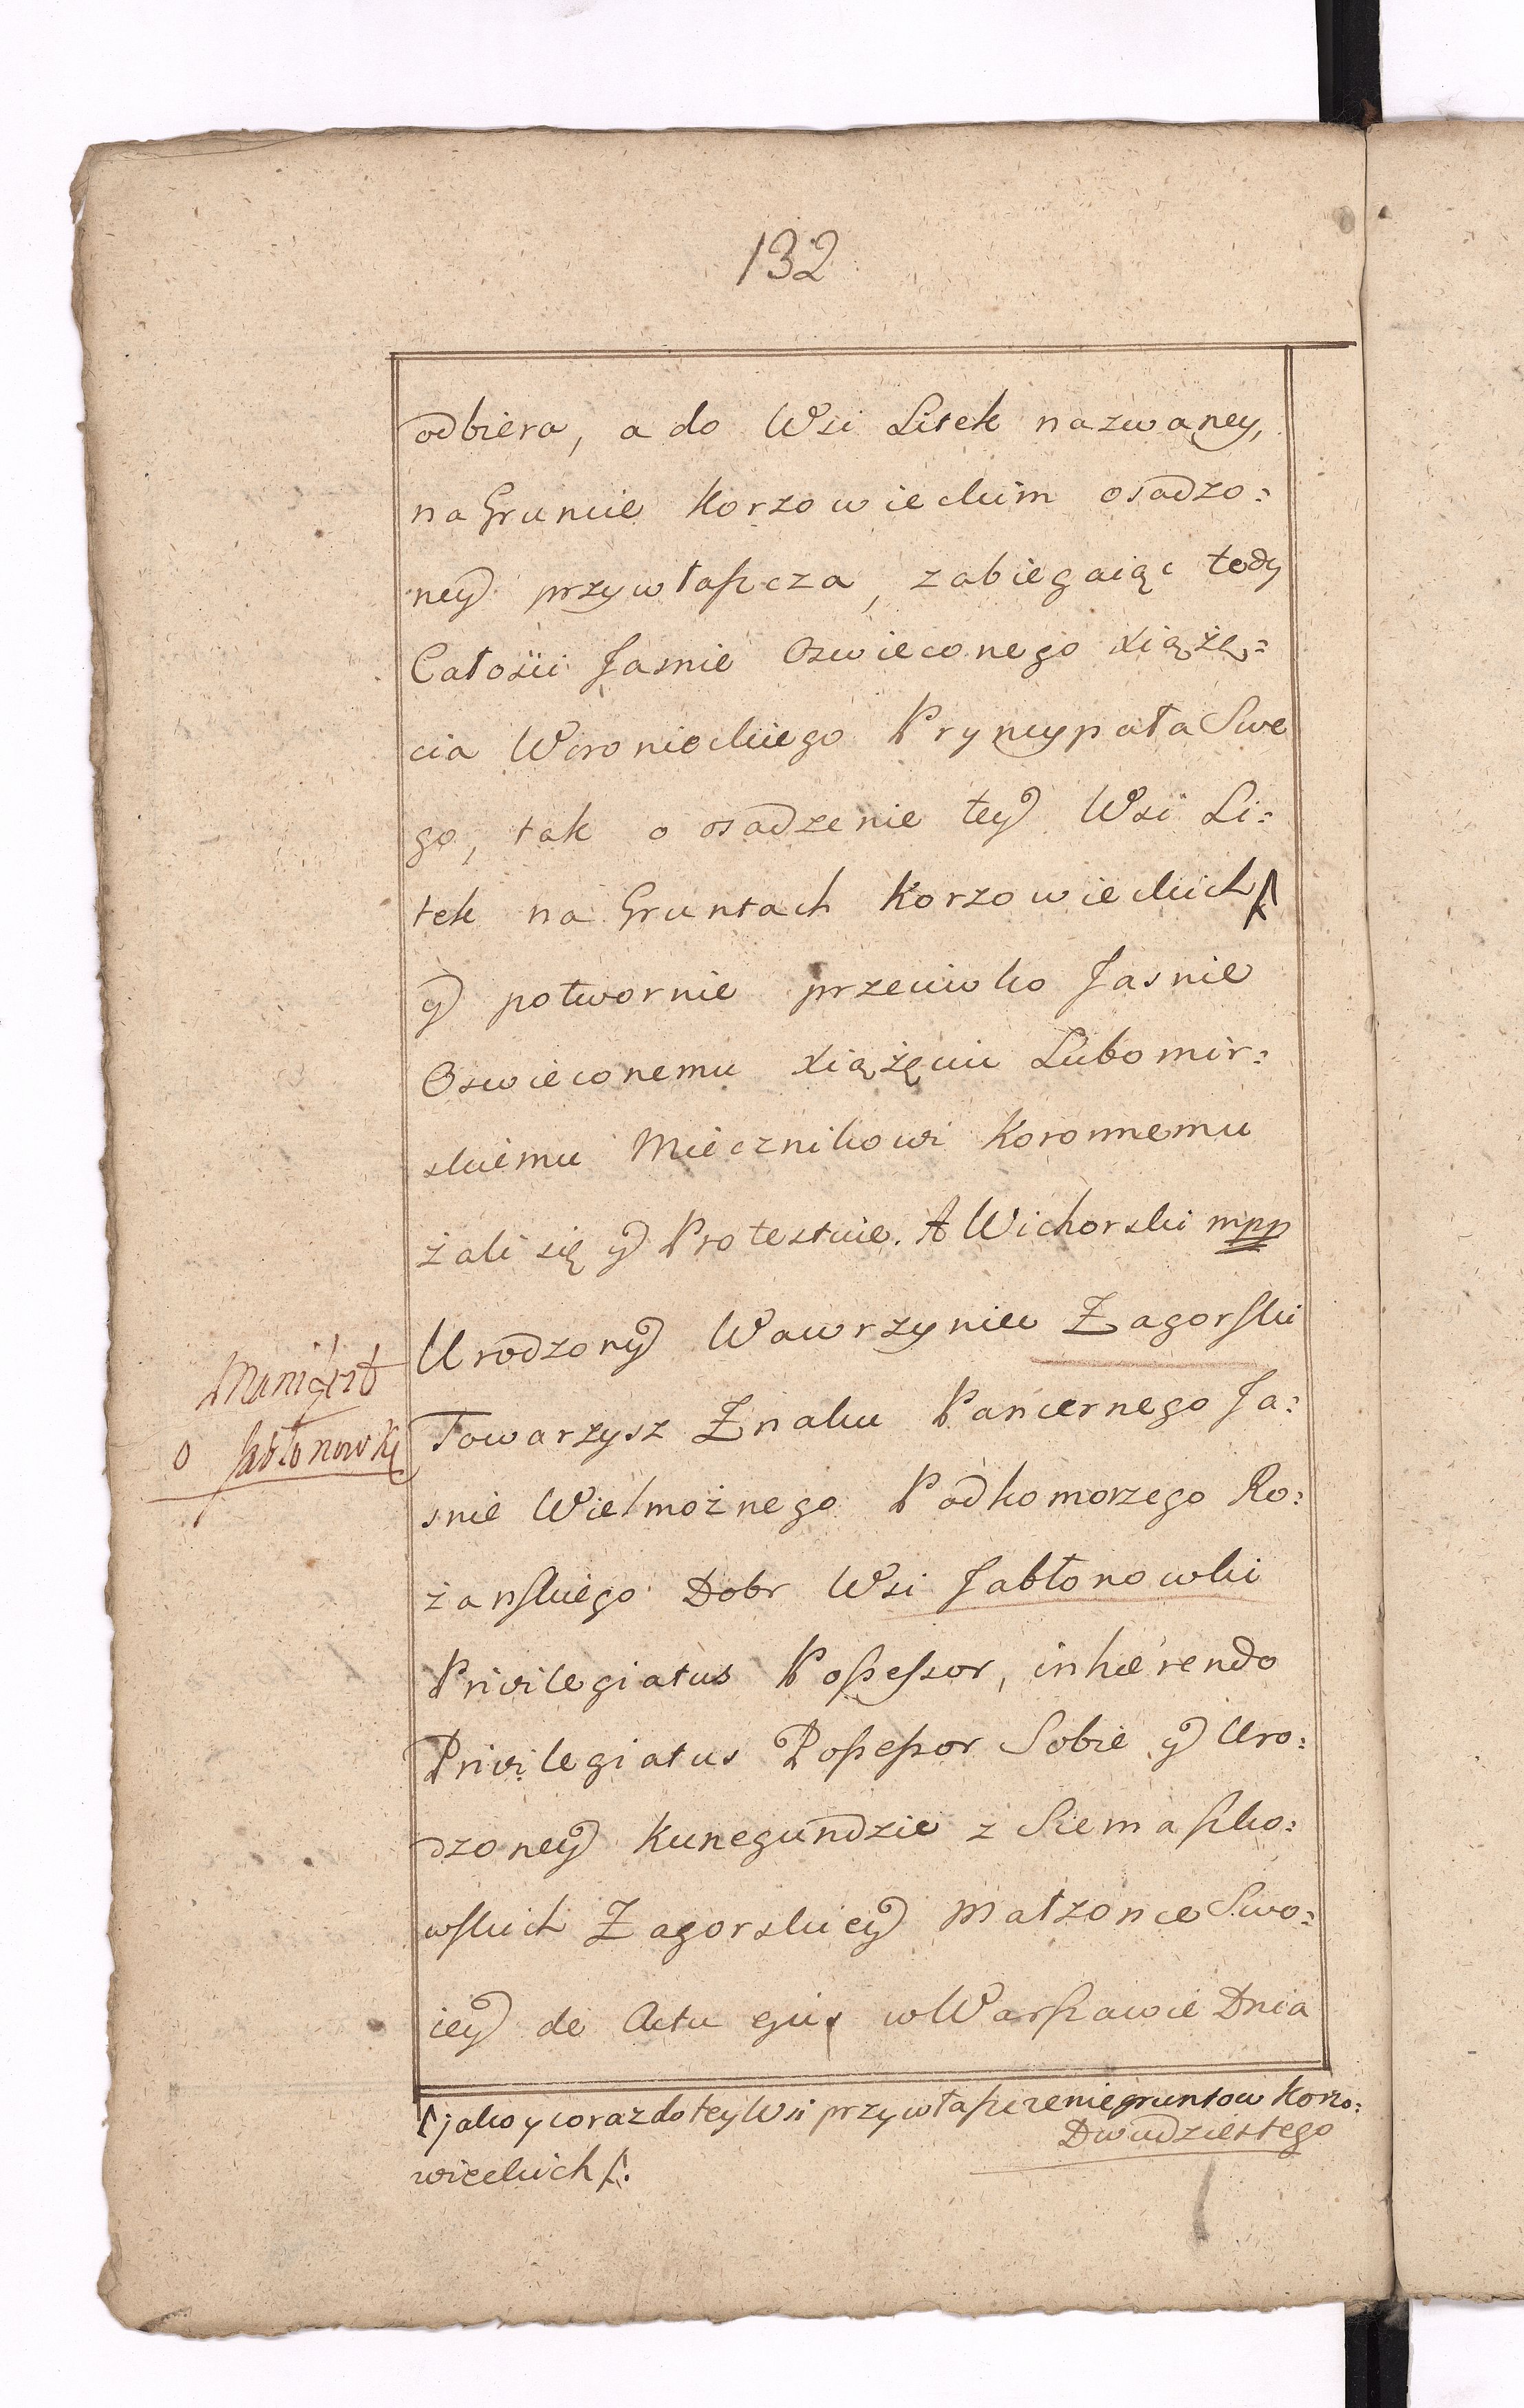 132
odbiera, a do Wsi Litek nazwaney,
na Gruncie Korzowieckim osadzo=
ney przywłaszcza, zabiegaiąc tedy
Całości Jasnie Oswieconego Xiążę=
cia Woronieckiego Pryncypała Swe
go, tak o osadzenie tey Wsi Li=
tek na Gruntach Korzowieckich
y potwornie przeciwko Jasnie
Oswieconemu Xiążęciu Lubomir=
skiemu Miecznikowi Koronnemu
żali się y Protestuie. A Wichorski mpp
Manifest
o Jabłonowkę
Urodzony Wawrzyniec Zagorski
Towarzysz Znaku Pancernego Ja=
snie Wielmożnego Podkomorzego Ro=
żanskiego Dobr Wsi Jabłonowki
Privilegiatus Possessor, inhærendo
Privilegiatus Possessor Sobie y Uro=
dzoney Kunegundzie z Siemaszko=
wskich Zagorskiey Małzonce Swo=
iey de Actu w Warszawie Dnia
jako y coraz do tey Wsi przywłaszczenie gruntow Korzo=
Dwudziestego
wieckich